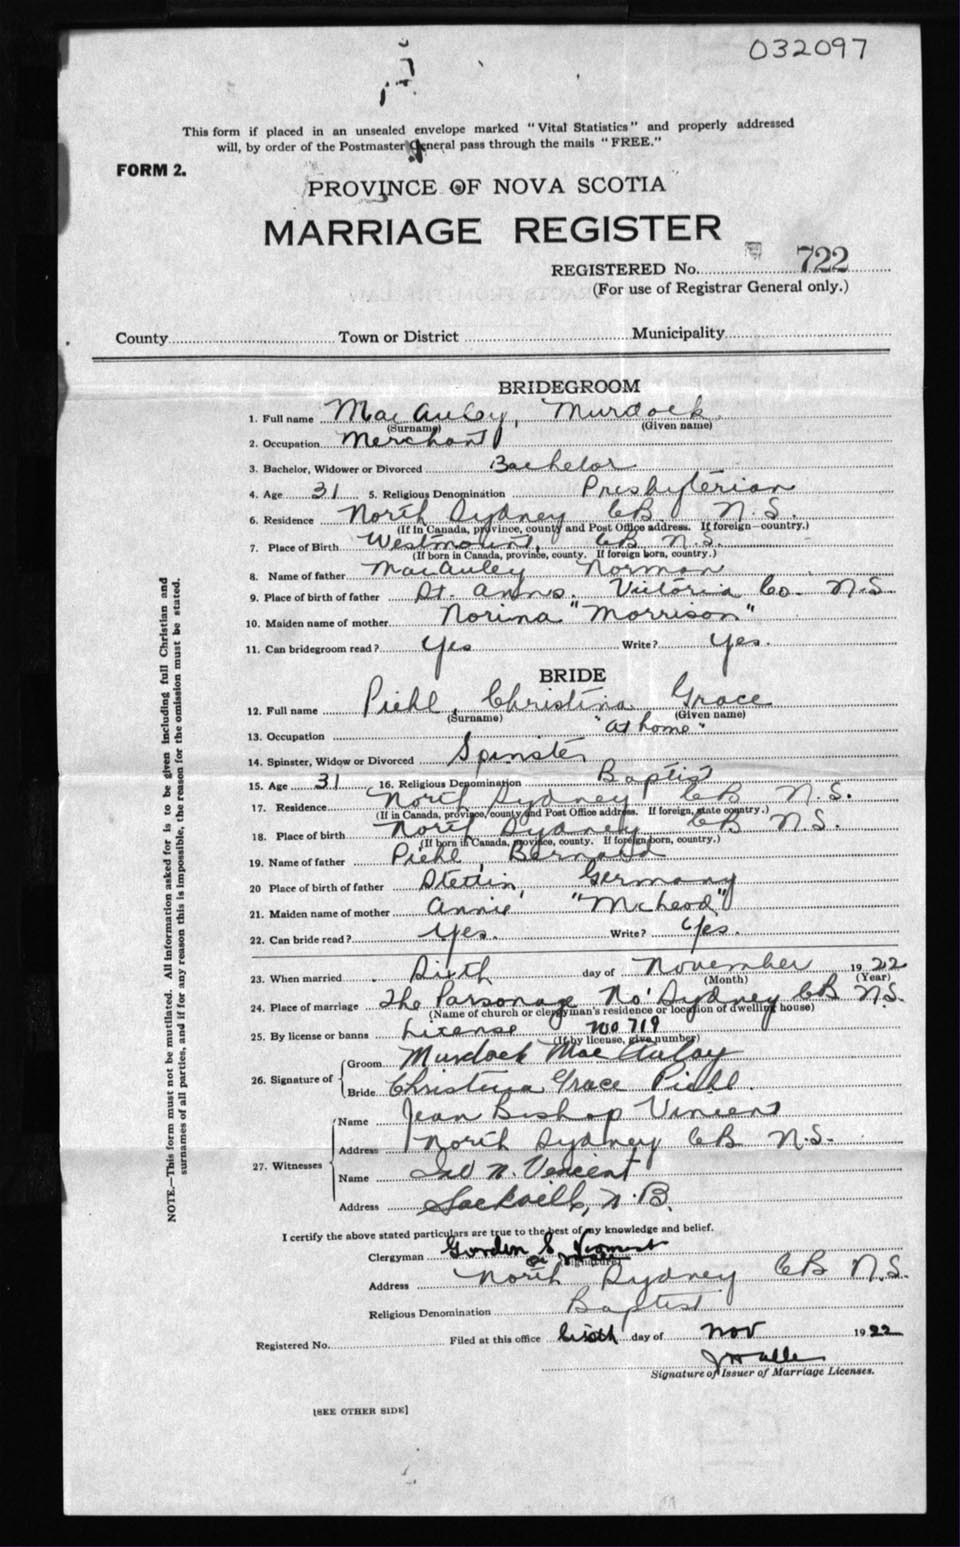 032097
This form if placed in an unsealed envelope marked "Vital Statistics" and properly addressed
will, by order of the Postmaster General pass through the mails "FREE."
FORM 2.
PROVINCE OF NOVA SCOTIA
MARRIAGE REGISTER
REGISTERED No. 722
(For use of Registrar General only.)
County Town or District Municipality
BRIDEGROOM
1. Full name MacAuley, Murdock
(Surname) (Given name)
2. Occupation Merchant
3. Bachelor, Widower or Divorced Bachelor
4. Age 31 5. Religious Denomination Presbyterian
6. Residence North Sydney CB N.S.
(If in Canada, province, county and Post Office address. If foreign—country.)
7. Place of Birth Westmount, CB N.S.
(If born in Canada, province, county. If foreign born, country.)
8. Name of father MacAuley Norman
9. Place of birth of father St. Anns. Victoria Co. N.S.
10. Maiden name of mother Norina "Morrison"
11. Can bridegroom read? Yes Write? Yes.
BRIDE
12. Full name Piehl, Christina Grace
(Surname) (Given name)
13. Occupation "at home"
14. Spinster, Widow or Divorced Spinster
15. Age 31 16. Religious Denomination Baptist
17. Residence North Sydney CB N.S.
(If in Canada, province, county and Post Office address. If foreign, state country.)
18. Place of birth North Sydney CB N.S.
(If born in Canada, province, county. If foreign born, country.)
19. Name of father Piehl, Bernard
20 Place of birth of father Stettin Germany
21. Maiden name of mother Annie "McLeod"
22. Can bride read? Yes. Write? Yes.
23. When married Sixth day of November 1922
(Month) (Year)
24. Place of marriage The Parsonage No' Sydney CB N.S.
(Name of church or clergyman's residence or location of dwelling house)
25. By license or banns License No 719
(If by license, give number)
26. Signature of Groom Murdock MacAulay
Bride Christina Grace Piehl.
27. Witnesses Name Jean Bishop Vincent
Address North Sydney CB N.S.
Name N. Vincent
Address Sackville, N.B.
I certify the above stated particulars are true to the best of my knowledge and belief.
Clergyman Gordon S.
(Signature)
Address North Sydney CB N.S.
Religious Denomination Baptist
Registered No. Filed at this office Sixth day of Nov 1922
Signature of Issuer of Marriage Licenses.
[SEE OTHER SIDE]
NOTE.—This form must not be mutilated. All information asked for is to be given including full Christian and
surnames of all parties, and if for any reason this is impossible, the reason for the omission must be stated.